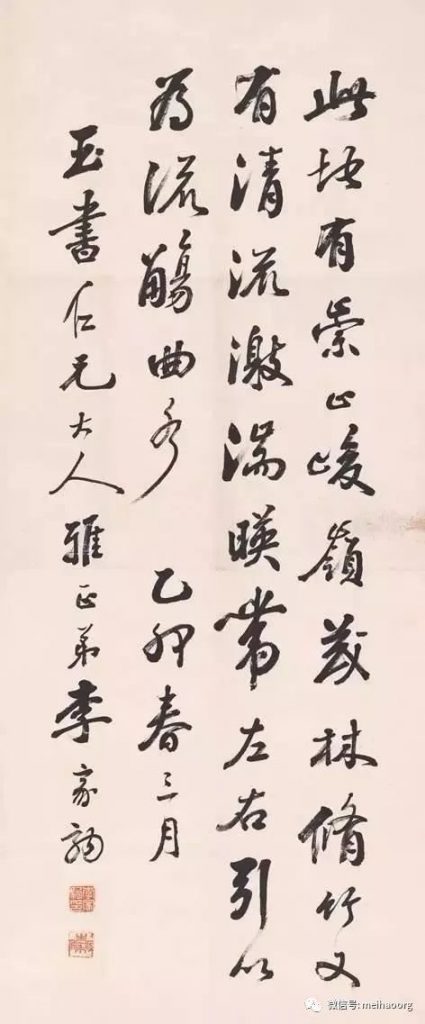 此地有崇山峻嶺茂林脩竹又
有清流激湍暎帶左右引以
為流觴曲水 乙卯春三月
玉書仁兄大人雅正弟李家駒
微信号: meihaoorg